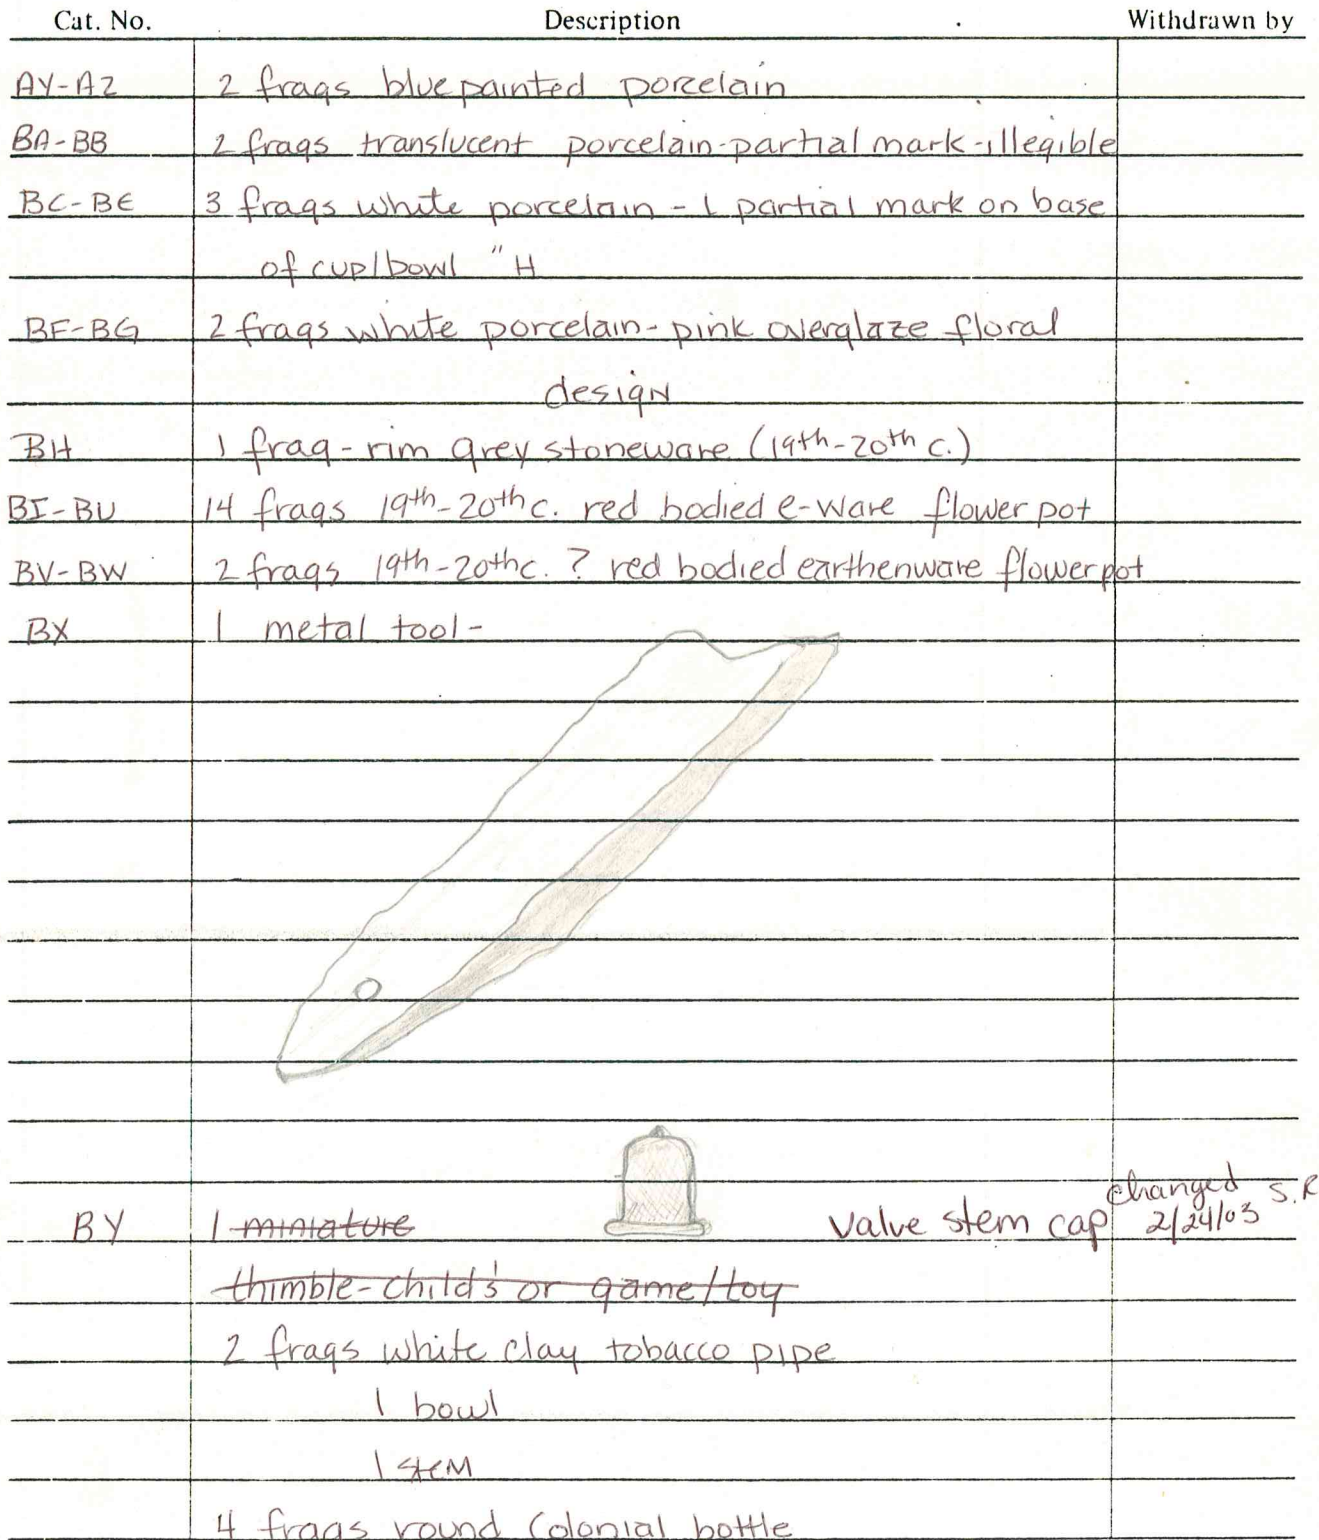 Cat. No. Description Withdrawn by
AY-AZ 2 frags blue painted porcelain
BA-BB 2 frags translucent porcelain-partial mark-illegible
BC-BE 3 frags white porcelain - 1 partial mark on base
of cup/bowl "H
BF-BG 2 frags white porcelain- pink overglaze floral
design
BH 1 frag - rim grey stoneware (19th-20th c.)
BI-BU 14 frags 19th-20th c. red bodied e-ware flower pot
BV-BW 2 frags 19th-20th c. ? red bodied earthenware flowerpot
BX 1 metal tool -
BY 1 miniature valve stem cap changed S.R
2/24/03
thimble-child's or game/toy
2 frags white clay tobacco pipe
1 bowl
1 stem
4 frags round Colonial bottle